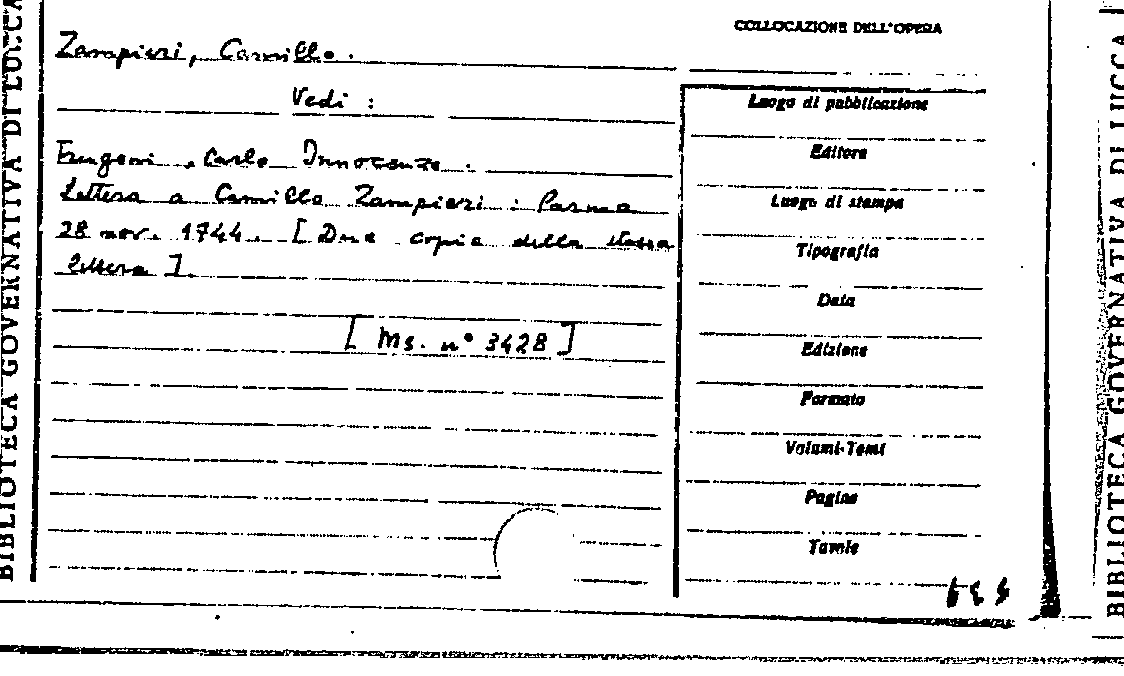 BIBLIOTECA GOVERNATIVA DI LUCCA
COLLOCAZIONE DELL'OPERA
Zampieri, Camillo.
Vedi :
Frugoni, Carlo Innocenzo.
Lettera a Camillo Zampieri : Parma
28 nov. 1744. [ Due copie della stessa
lettera ].
[ Ms. n° 3428 ]
Luogo di pubblicazione
Editore
Luogo di stampa
Tipografia
Data
Edizione
Formato
Volumi-Tomi
Pagine
Tavole
BIBLIOTECA GOVERNATIVA DI LUCCA